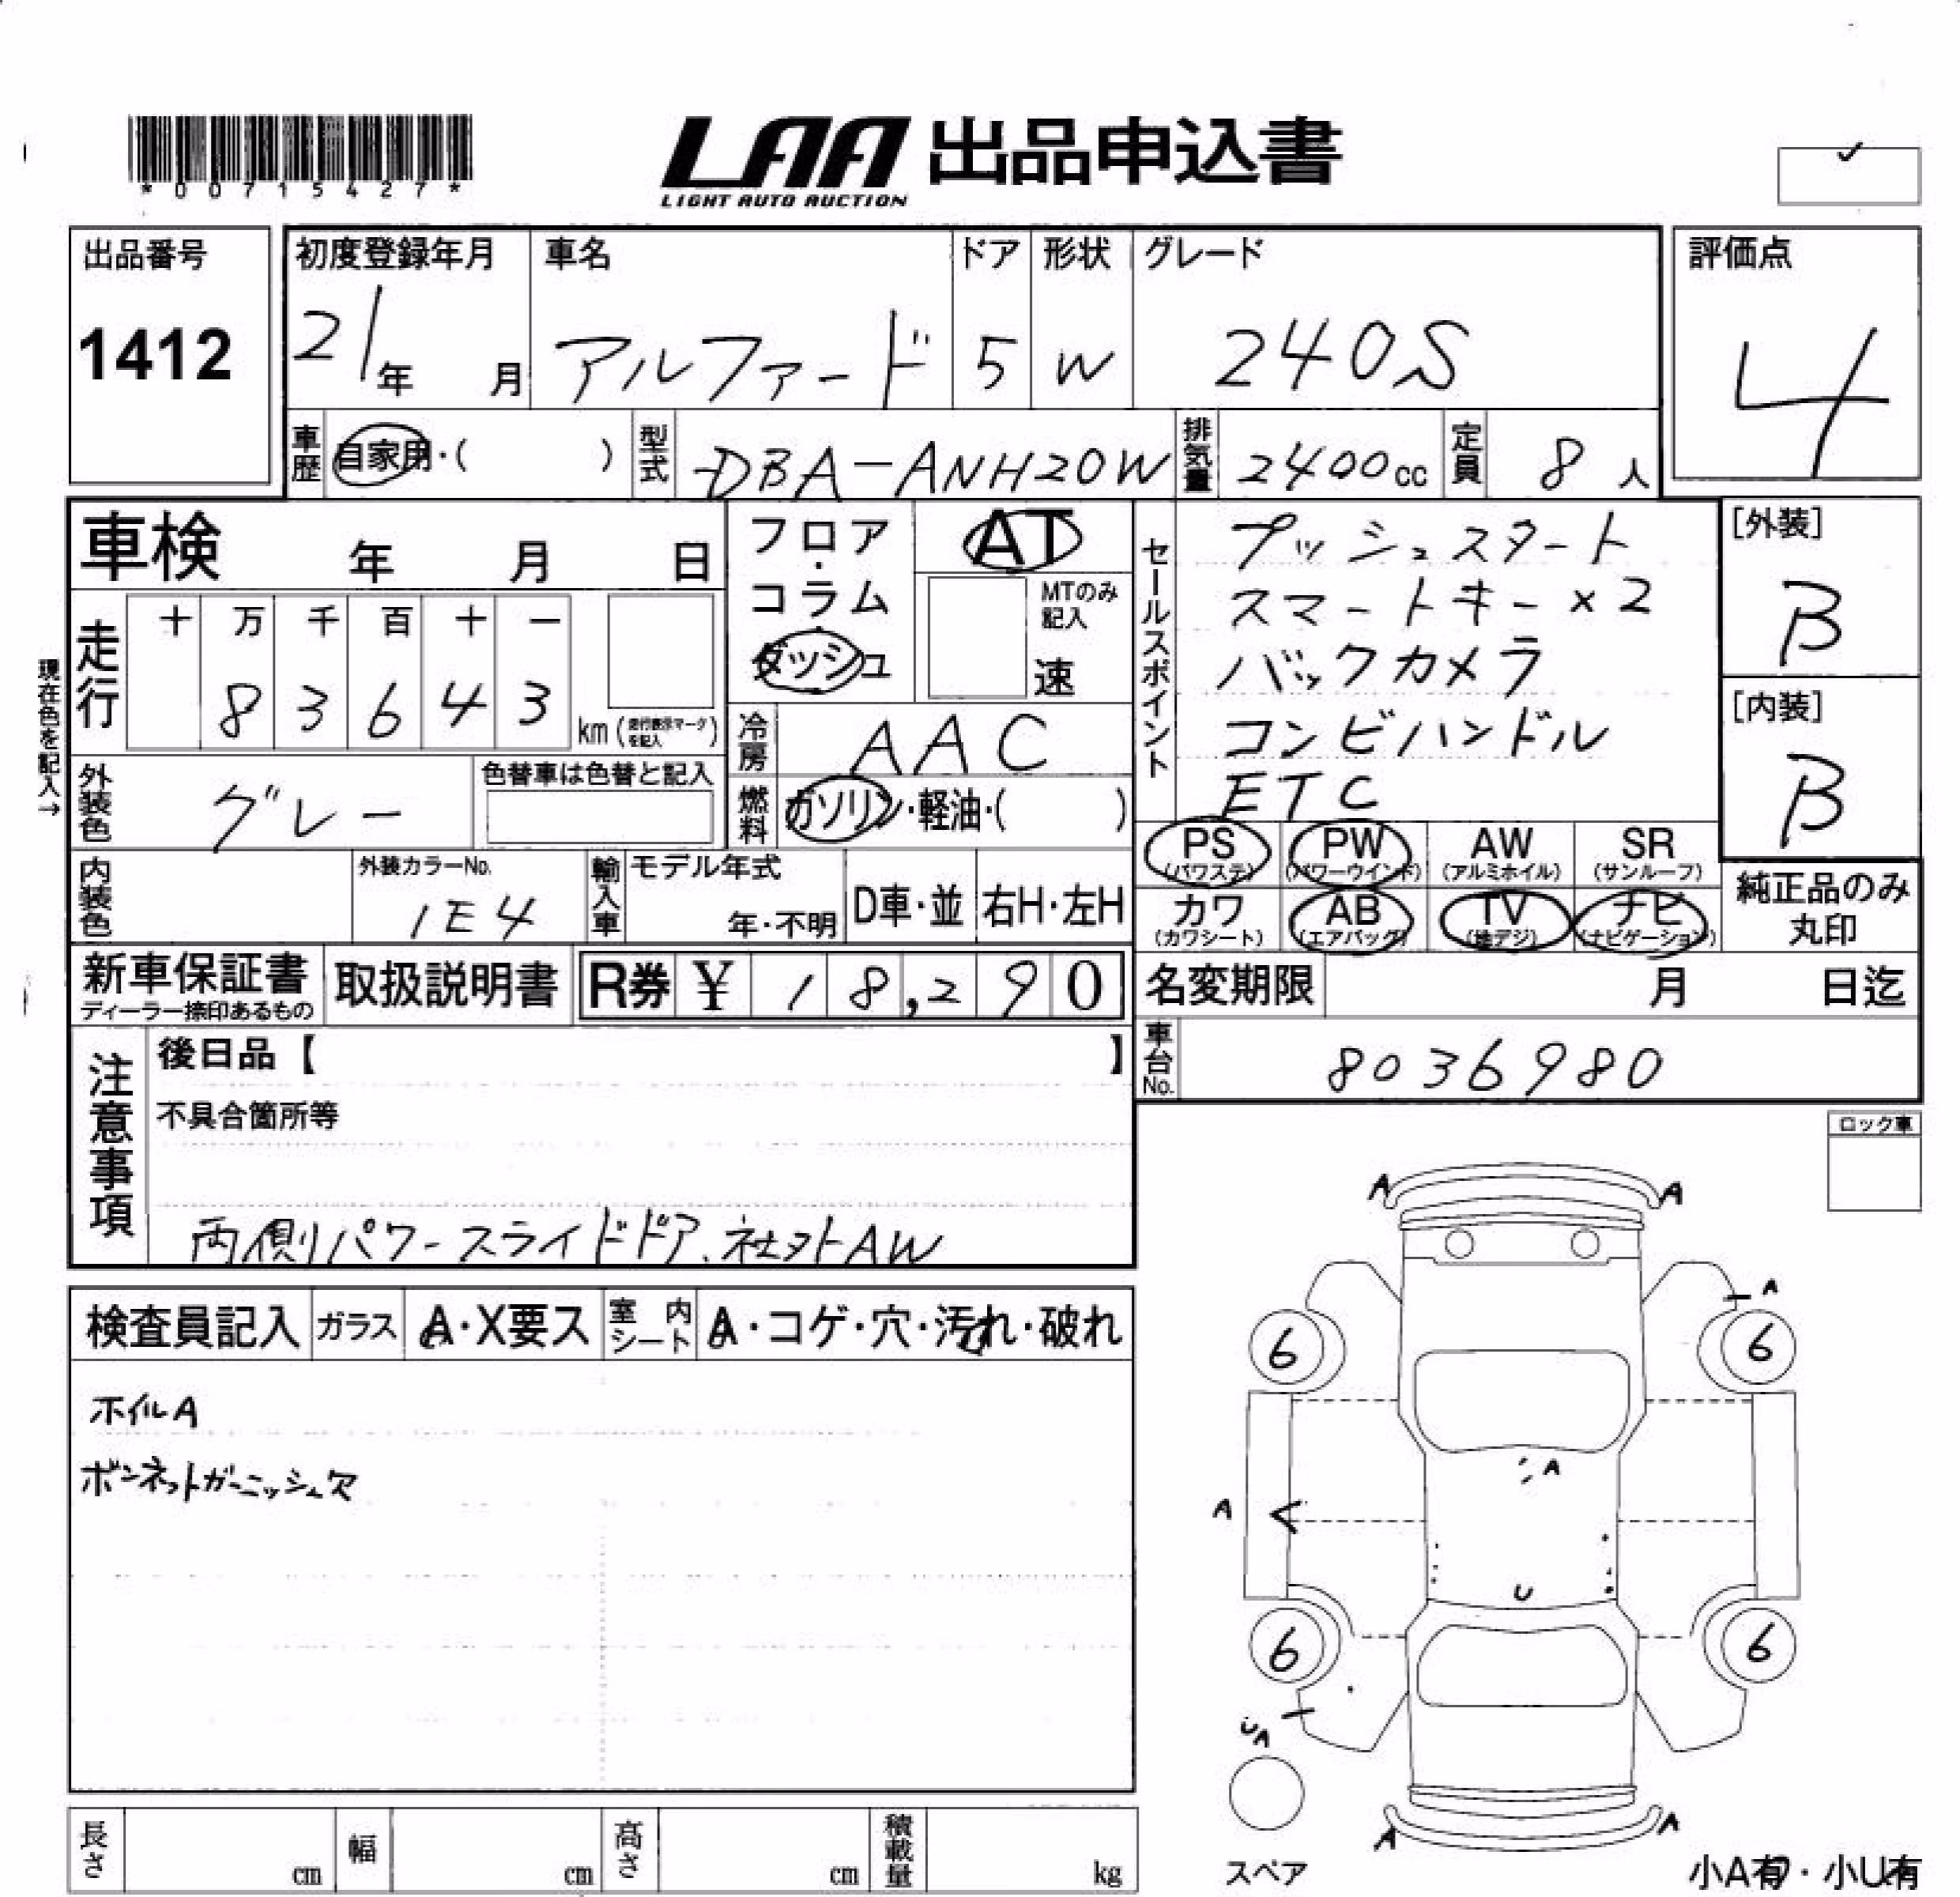 *00715427*
LAA 出品申込書
LIGHT AUTO AUCTION
出品番号
1412
初度登録年月
21年 月
車名
アルファード
ドア
5
形状
W
グレード
240S
評価点
4
車歴 自家用・( )
型式 DBA-ANH20W
排気量 2400cc
定員 8人
車検 年 月 日
現在色を記入→
走行 十 万 千 百 十 一
8 3 6 4 3
km(走行表示マークを記入)
フロア・コラム・ダッシュ
AT
MTのみ記入
速
冷房 AAC
燃料 ガソリン・軽油・( )
外装色 グレー
色替車は色替と記入
内装色
外装カラーNo.
1E4
輸入車 モデル年式
年・不明
D車・並 右H・左H
セールスポイント
プッシュスタート
スマートキー×2
バックカメラ
コンビハンドル
ETC
PS (パワステ)
PW (パワーウインド)
AW (アルミホイル)
SR (サンルーフ)
カワ (カワシート)
AB (エアバック)
TV (地デジ)
ナビ (ナビゲーション)
[外装]
B
[内装]
B
純正品のみ
丸印
新車保証書
ディーラー捺印あるもの
取扱説明書
R券 ¥ 18,290
名変期限 月 日迄
車台No. 8036980
注意事項
後日品【 】
不具合箇所等
両側パワースライドドア、社外AW
ロック車
検査員記入 ガラス A・X要ス 室内シート A・コゲ・穴・汚れ・破れ
ホイルA
ボンネットガーニッシュ欠
A A
A
6 6
A
A
U
6 6
UA
A A
スペア
小A有・小U有
長さ cm 幅 cm 高さ cm 積載量 kg